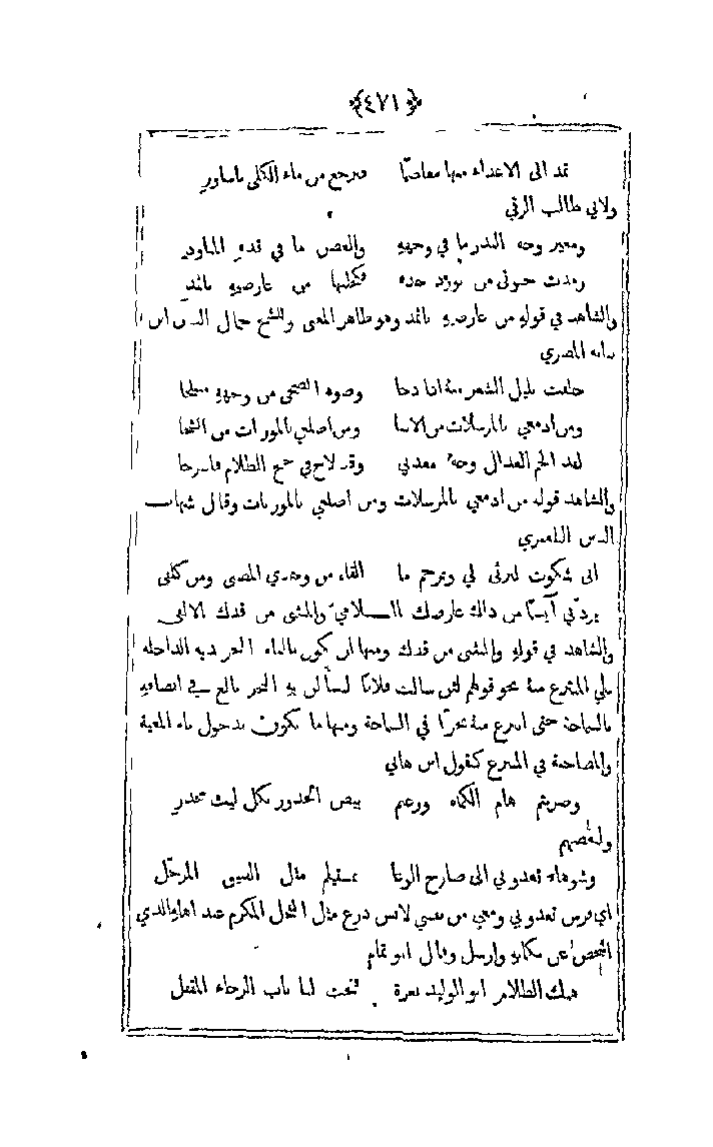 ﴿٤٧١﴾
تمد الى الاعداء منها معاصمًا فترجع من ماء الكلى باساور
ولابي طالب الرقي
ومعير وجه البدر ما في وجههِ والغصن ما في قدهِ المتاود
من تورد خده فكحلتها من عارضيهِ باثمد
والشاهد في قولهِ من عارضيهِ باثمد وهو ظاهر المعنى وللشيخ جمال الدين ابن
نباته المصري
حلفت بليل الشعر منهُ اذا دجا وضوء الضحى من وجههِ
ومن ادمعي بالمرسلات من الاسا ومن اضلعي بالموريات من الشجا
لقد الجم العذال وجه معذبي وقد لاح في جنح الظلام فاسرجا
والشاهد قوله من ادمعي بالمرسلات ومن اضلعي بالموريات وقال شهاب
الدين التلعفري
انى شكوت لترثى لي وترحم ما القاه من وجدي المضنى ومن كلفى
يردّني آيسًا من ذاك عارضك اللامىّ والمثنى من قدك الالفى
والشاهد في قولهِ والمثنى من قدك ومنها ان يكون بالباء التجريديه الداخله
على المنتزع منهُ نحو قولهم لئن سالت فلانًا لتسألن بهِ البحر بالغ في اتصافهِ
بالسماحة حتى انتزع منهُ بحرًا في السماحة ومنها ما يكون بدخول باء المعية
والمصاحبة في المنتزع كقول ابن هاني
وضربتم هام الكماه ورعتم بيض الخدور بكل ليث مخدر
ولبعضهم
وشوهاء تعدو بي الى صارخ الوغا بمستلئم مثل الفنيق المرحّل
اي فرس تعدو بي ومعي من نفسي لابس درع مثل الفحل المكرم عند اهلهِ والذي
اشخص عن مكانهِ وارسل وقال ابو تمام
هتك الظلام ابو الوليد بغرة فتحت لنا باب الرجاء المقفل